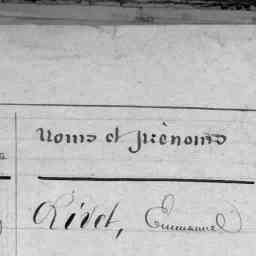 Noms et prénoms
Rivet, Emmanuel